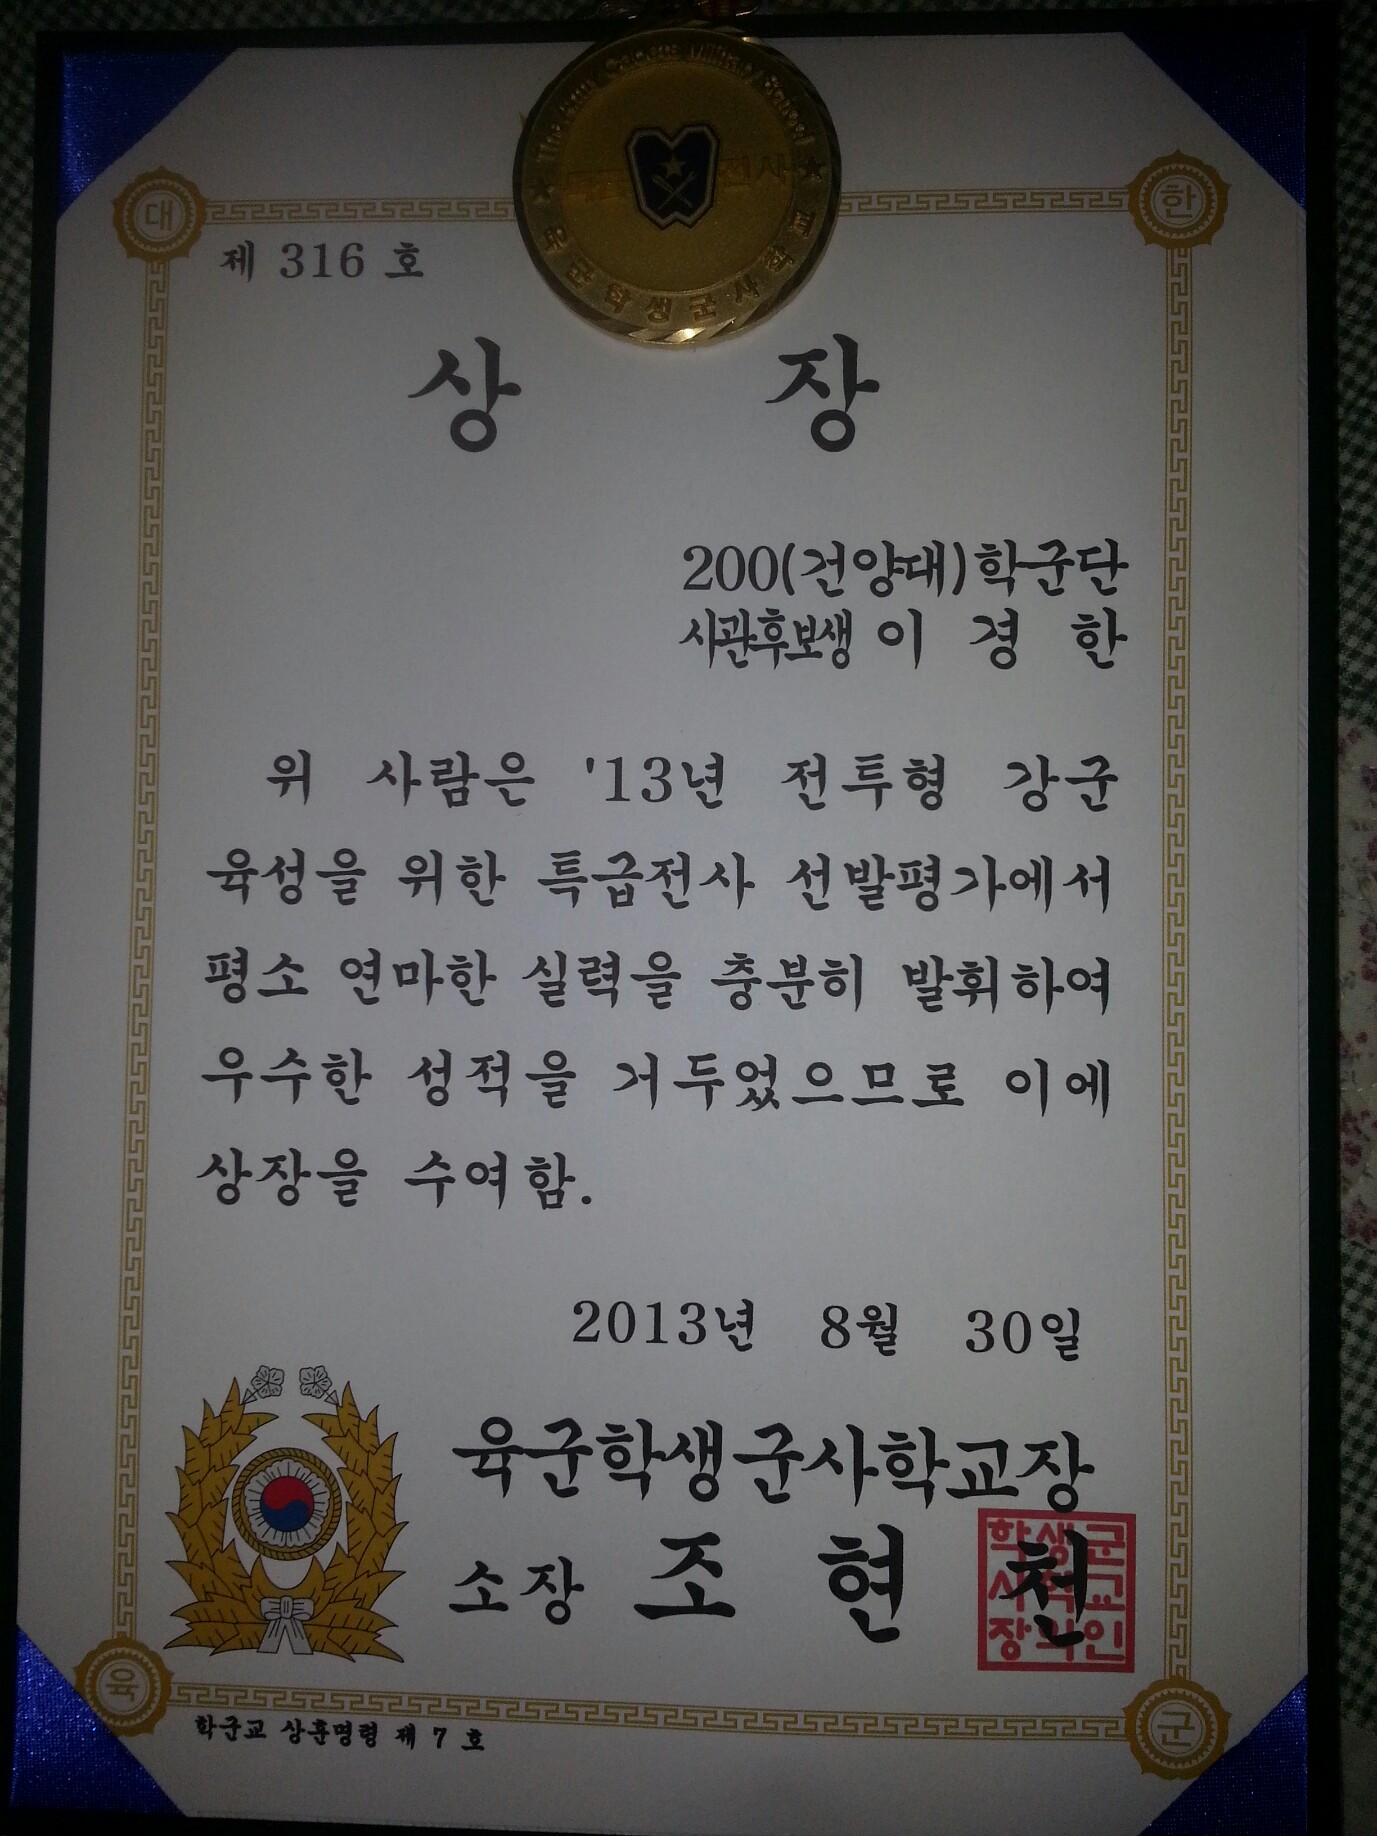 The Army Cadets Military School
전사
육군학생군사학교
대
한
제 316 호
상 장
200(건양대)학군단
사관후보생 이 경 한
위 사람은 '13년 전투형 강군
육성을 위한 특급전사 선발평가에서
평소 연마한 실력을 충분히 발휘하여
우수한 성적을 거두었으므로 이에
상장을 수여함.
2013년 8월 30일
육군학생군사학교장
소장 조 현 천
학생군
사학교
장의인
육
군
학군교 상훈명령 제 7 호